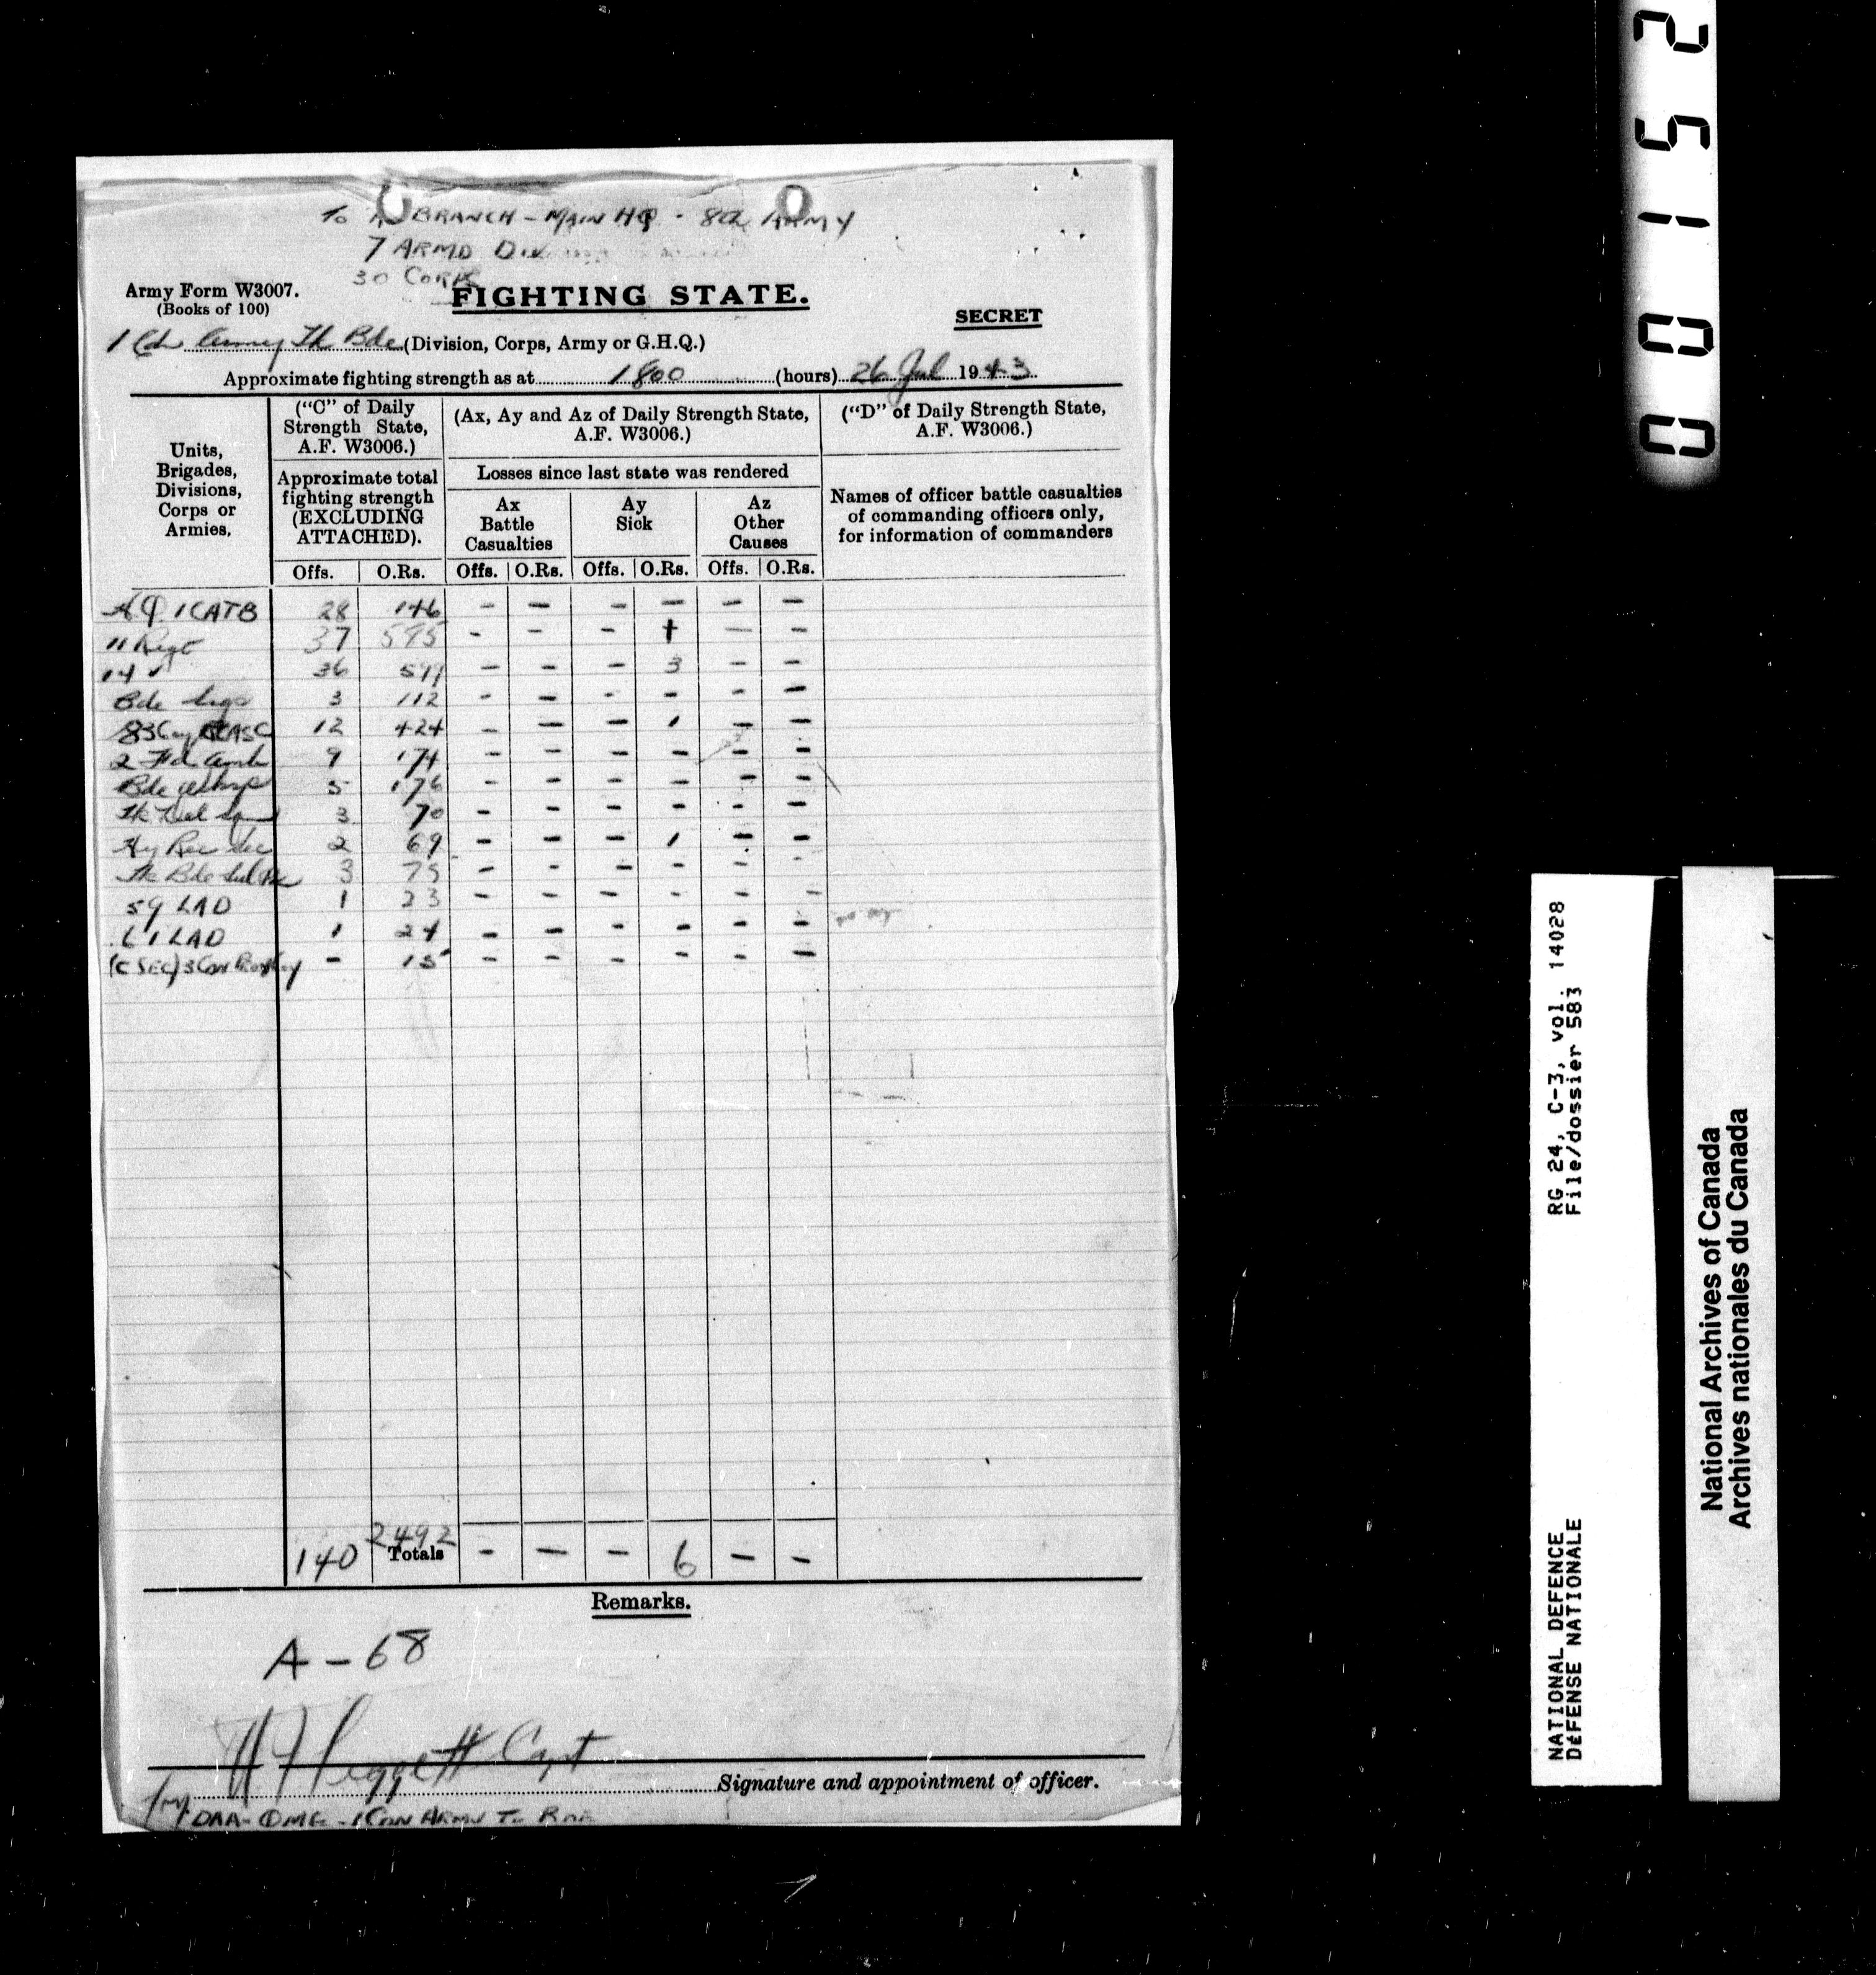 To A BRANCH - MAIN HQ - 8th ARMY
7 ARMD DIV
30 CORPS
Army Form W3007.
(Books of 100)
FIGHTING STATE.
SECRET
1 Cdn Army Tk Bde (Division, Corps, Army or G.H.Q.)
Approximate fighting strength as at 1800 (hours) 26 Jul 1943
Units, Brigades, Divisions, Corps or Armies.
("C" of Daily Strength State, A.F. W3006.)
(Ax, Ay and Az of Daily Strength State, A.F. W3006.)
("D" of Daily Strength State, A.F. W3006.)
Approximate total fighting strength (EXCLUDING ATTACHED).
Losses since last state was rendered
Ax Battle Casualties
Ay Sick
Az Other Causes
Names of officer battle casualties of commanding officers only, for information of commanders
Offs. O.Rs. Offs. O.Rs. Offs. O.Rs. Offs. O.Rs.
HQ 1 CATB 28 146 - - - - - -
11 Regt 37 595 - - - 1 - -
14 " 36 - - - 3 - -
Bde Sigs 3 112 - - - - - -
83 Coy RCASC 12 424 - - - 1 - -
2 Fd Amb 9 174 - - - - - -
Bde Wksp 5 176 - - - - - -
Tk Del Sqn 3 70 - - - - - -
Hy Rec Sec 2 69 - - - 1 - -
Tk Bde Sub Pk 3 75 - - - - - -
59 LAD 1 23 - - - - - -
61 LAD 1 24 - - - - - -
(C SEC) 3 Cdn Pro Coy - 15 - - - - - -
140 2492 Totals - - - 6 - -
Remarks.
A-68
Capt
Signature and appointment of officer.
for DAA-QMG - 1 CDN ARMY TK BDE
00152
RG 24, C-3, vol. 14028
File/dossier 583
NATIONAL DEFENCE
DÉFENSE NATIONALE
National Archives of Canada
Archives nationales du Canada